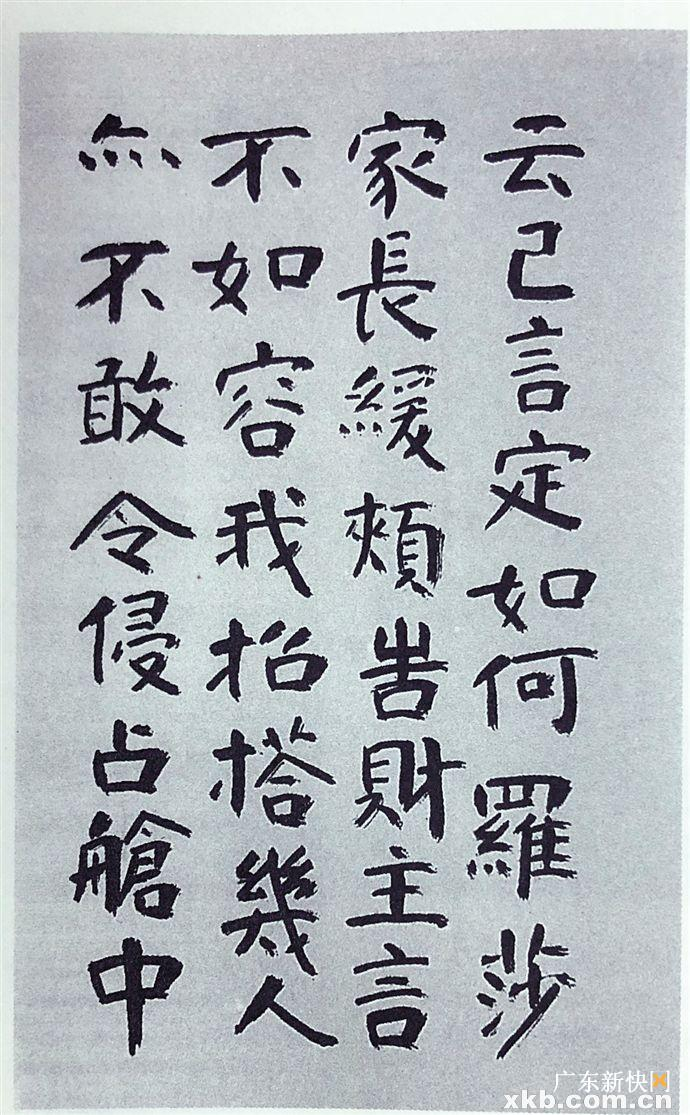 云已言定如何羅莎
家長緩頰告財主言
不如容我招搭幾人
亦不敢令侵占艙中
广东新快网
xkb.com.cn